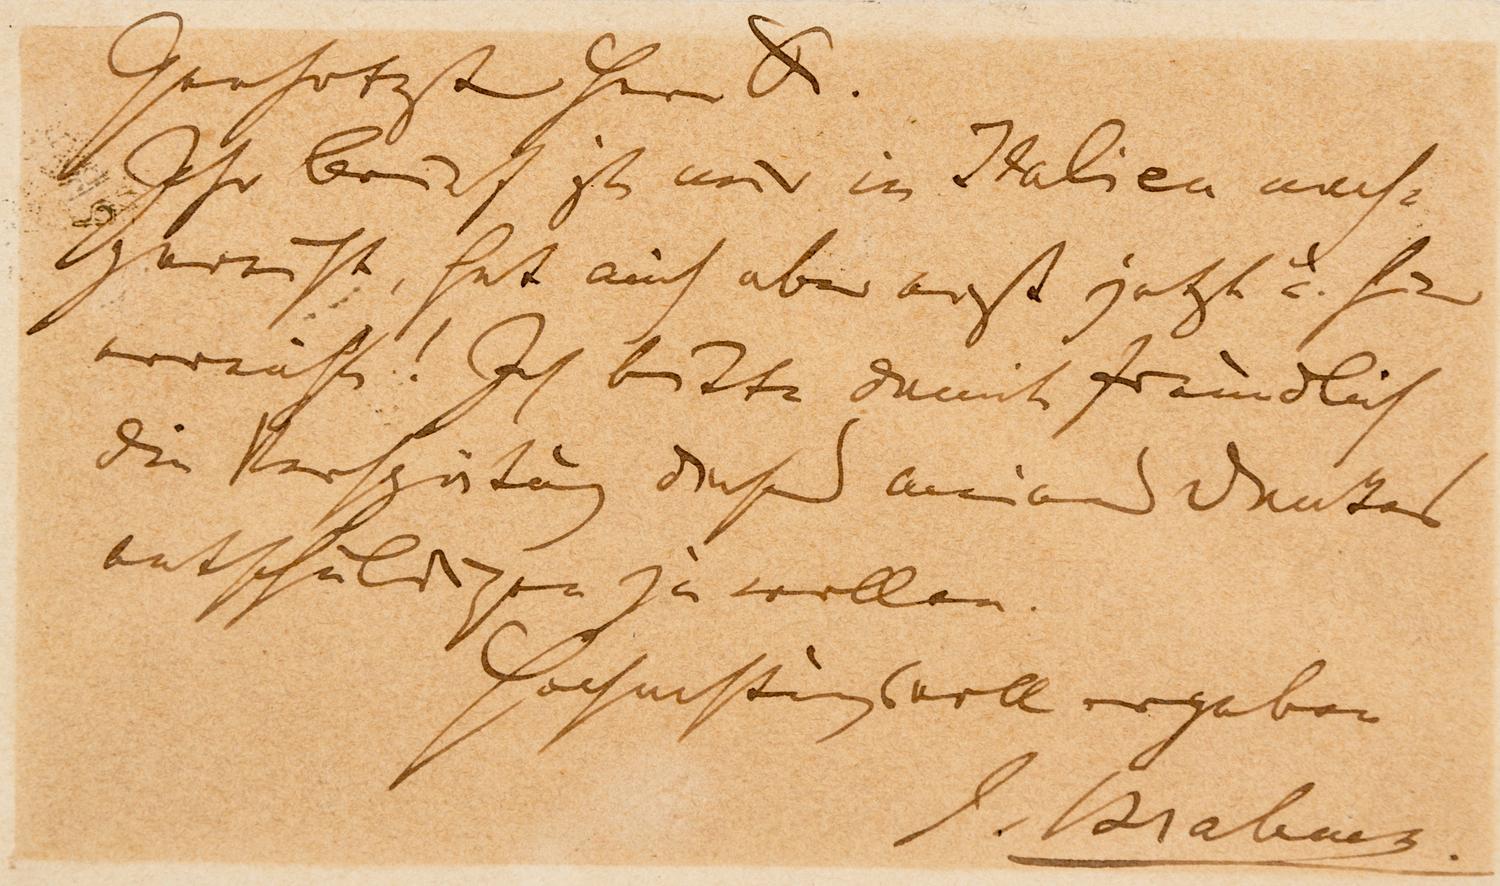 Geehrtester Herr Dr.
Ihr Brief ist mir in Italien nach-
gereist, hat mich aber erst jetzt u. hier
erreicht! Ich bitte damit freundlich
die Verspätung dieses meines Dankes
entschuldigen zu wollen.
Hochachtungsvoll ergeben
J. Brahms.